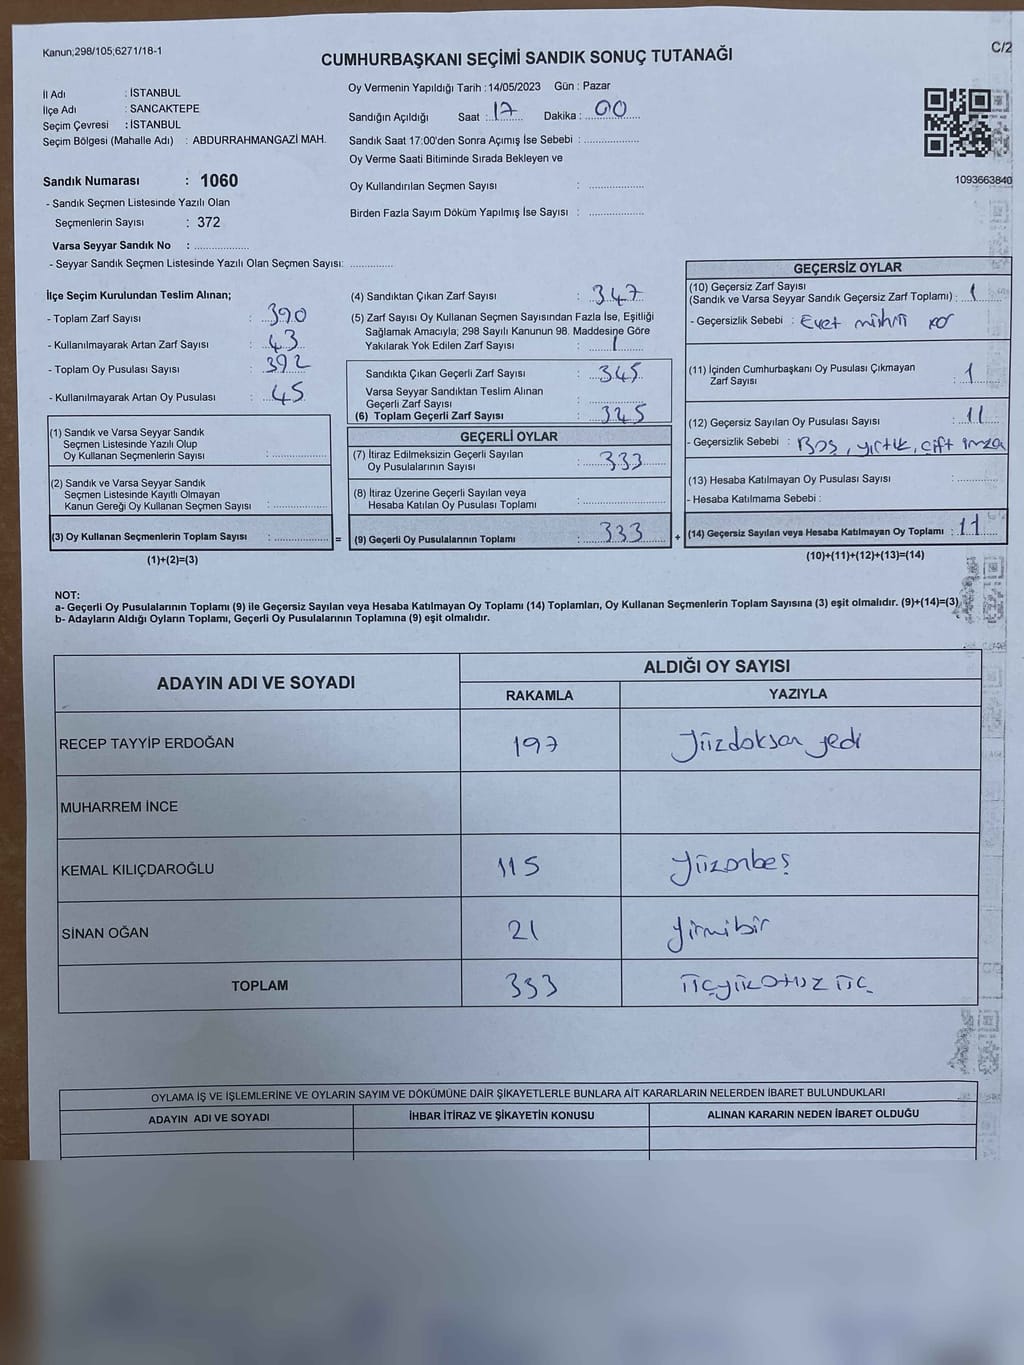 Kanun;298/105;6271/18-1
C/2
CUMHURBAŞKANI SEÇİMİ SANDIK SONUÇ TUTANAĞI
İl Adı : İSTANBUL
İlçe Adı : SANCAKTEPE
Seçim Çevresi : İSTANBUL
Seçim Bölgesi (Mahalle Adı) : ABDURRAHMANGAZİ MAH.
Oy Vermenin Yapıldığı Tarih : 14/05/2023 Gün : Pazar
Sandığın Açıldığı Saat : 17 Dakika : 00
Sandık Saat 17:00'den Sonra Açımış İse Sebebi : ..................
Oy Verme Saati Bitiminde Sırada Bekleyen ve
Oy Kullandırılan Seçmen Sayısı : ..................
Birden Fazla Sayım Döküm Yapılmış İse Sayısı : ..................
1093663840
Sandık Numarası : 1060
- Sandık Seçmen Listesinde Yazılı Olan
Seçmenlerin Sayısı : 372
Varsa Seyyar Sandık No : ..................
- Seyyar Sandık Seçmen Listesinde Yazılı Olan Seçmen Sayısı: ..............
İlçe Seçim Kurulundan Teslim Alınan;
- Toplam Zarf Sayısı : 390
- Kullanılmayarak Artan Zarf Sayısı : 43
- Toplam Oy Pusulası Sayısı : 392
- Kullanılmayarak Artan Oy Pusulası : 45
(1) Sandık ve Varsa Seyyar Sandık
Seçmen Listesinde Yazılı Olup
Oy Kullanan Seçmenlerin Sayısı : ..................
(2) Sandık ve Varsa Seyyar Sandık
Seçmen Listesinde Kayıtlı Olmayan
Kanun Gereği Oy Kullanan Seçmen Sayısı : ..................
(3) Oy Kullanan Seçmenlerin Toplam Sayısı : .................. =
(1)+(2)=(3)
(4) Sandıktan Çıkan Zarf Sayısı : 347
(5) Zarf Sayısı Oy Kullanan Seçmen Sayısından Fazla İse, Eşitliği
Sağlamak Amacıyla; 298 Sayılı Kanunun 98. Maddesine Göre
Yakılarak Yok Edilen Zarf Sayısı : 1
Sandıkta Çıkan Geçerli Zarf Sayısı : 345
Varsa Seyyar Sandıktan Teslim Alınan
Geçerli Zarf Sayısı : ..................
(6) Toplam Geçerli Zarf Sayısı : 345
GEÇERLİ OYLAR
(7) İtiraz Edilmeksizin Geçerli Sayılan
Oy Pusulalarının Sayısı : 333
(8) İtiraz Üzerine Geçerli Sayılan veya
Hesaba Katılan Oy Pusulası Toplamı : ..................
(9) Geçerli Oy Pusulalarının Toplamı : 333 +
GEÇERSİZ OYLAR
(10) Geçersiz Zarf Sayısı
(Sandık ve Varsa Seyyar Sandık Geçersiz Zarf Toplamı) : 1
- Geçersizlik Sebebi : Evet
(11) İçinden Cumhurbaşkanı Oy Pusulası Çıkmayan
Zarf Sayısı : 1
(12) Geçersiz Sayılan Oy Pusulası Sayısı : 11
- Geçersizlik Sebebi : Boş, yırtık, çift imza
(13) Hesaba Katılmayan Oy Pusulası Sayısı : ..............
- Hesaba Katılmama Sebebi :
(14) Geçersiz Sayılan veya Hesaba Katılmayan Oy Toplamı : 11
(10)+(11)+(12)+(13)=(14)
NOT:
a- Geçerli Oy Pusulalarının Toplamı (9) ile Geçersiz Sayılan veya Hesaba Katılmayan Oy Toplamı (14) Toplamları, Oy Kullanan Seçmenlerin Toplam Sayısına (3) eşit olmalıdır. (9)+(14)=(3)
b- Adayların Aldığı Oyların Toplamı, Geçerli Oy Pusulalarının Toplamına (9) eşit olmalıdır.
ADAYIN ADI VE SOYADI
ALDIĞI OY SAYISI
RAKAMLA YAZIYLA
RECEP TAYYİP ERDOĞAN 197 Yüzdoksan yedi
MUHARREM İNCE
KEMAL KILIÇDAROĞLU 115 Yüzonbeş
SİNAN OĞAN 21 Yirmibir
TOPLAM 333 üçyüzotuz üç
OYLAMA İŞ VE İŞLEMLERİNE VE OYLARIN SAYIM VE DÖKÜMÜNE DAİR ŞİKAYETLERLE BUNLARA AİT KARARLARIN NELERDEN İBARET BULUNDUKLARI
ADAYIN ADI VE SOYADI İHBAR İTİRAZ VE ŞİKAYETİN KONUSU ALINAN KARARIN NEDEN İBARET OLDUĞU